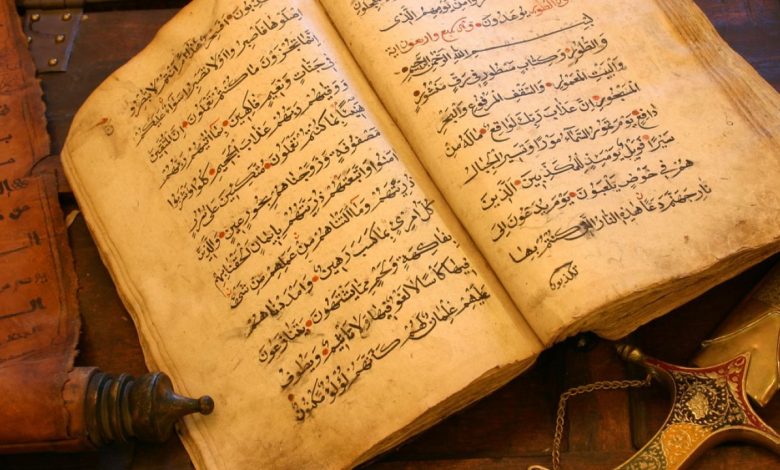 من يومهم الذي
يوعدون
بسم الله الرحمن الرحيم
والطور وكتاب مسطور في رق منشور
والبيت المعمور والسقف المرفوع والبحر
المسجور ان عذاب ربك لواقع ماله من
دافع يوم تمور السماء مورا وتسير الجبال
سيرا فويل يومئذ للمكذبين الذين
هم في خوض يلعبون يوم يدعون الى
نار جهنم دعا هذه النار التي كنتم بها
تكذبون
تكذبون افسحر هذا ام انتم لا تبصرون
اصلوها فاصبروا اولا تصبروا سواء عليكم
انما تجزون ما كنتم تعملون ان المتقين
في جنات ونعيم فاكهين بما اتيهم ربهم
ووقيهم ربهم عذاب الجحيم كلوا واشربوا
هنيئا بما كنتم تعملون متكئين على سرر
مصفوفة وزوجناهم بحور عين والذين
امنوا واتبعتهم ذريتهم بايمان الحقنا بهم
ذريتهم وما التناهم من عملهم من شئ
كل امرئ بما كسب رهين وامددناهم
بفاكهة ولحم مما يشتهون يتنازعون
فيها كاسا لا لغو فيها ولا تاثيم ويطوف
عليهم غلمان لهم كانهم لؤلؤ مكنون